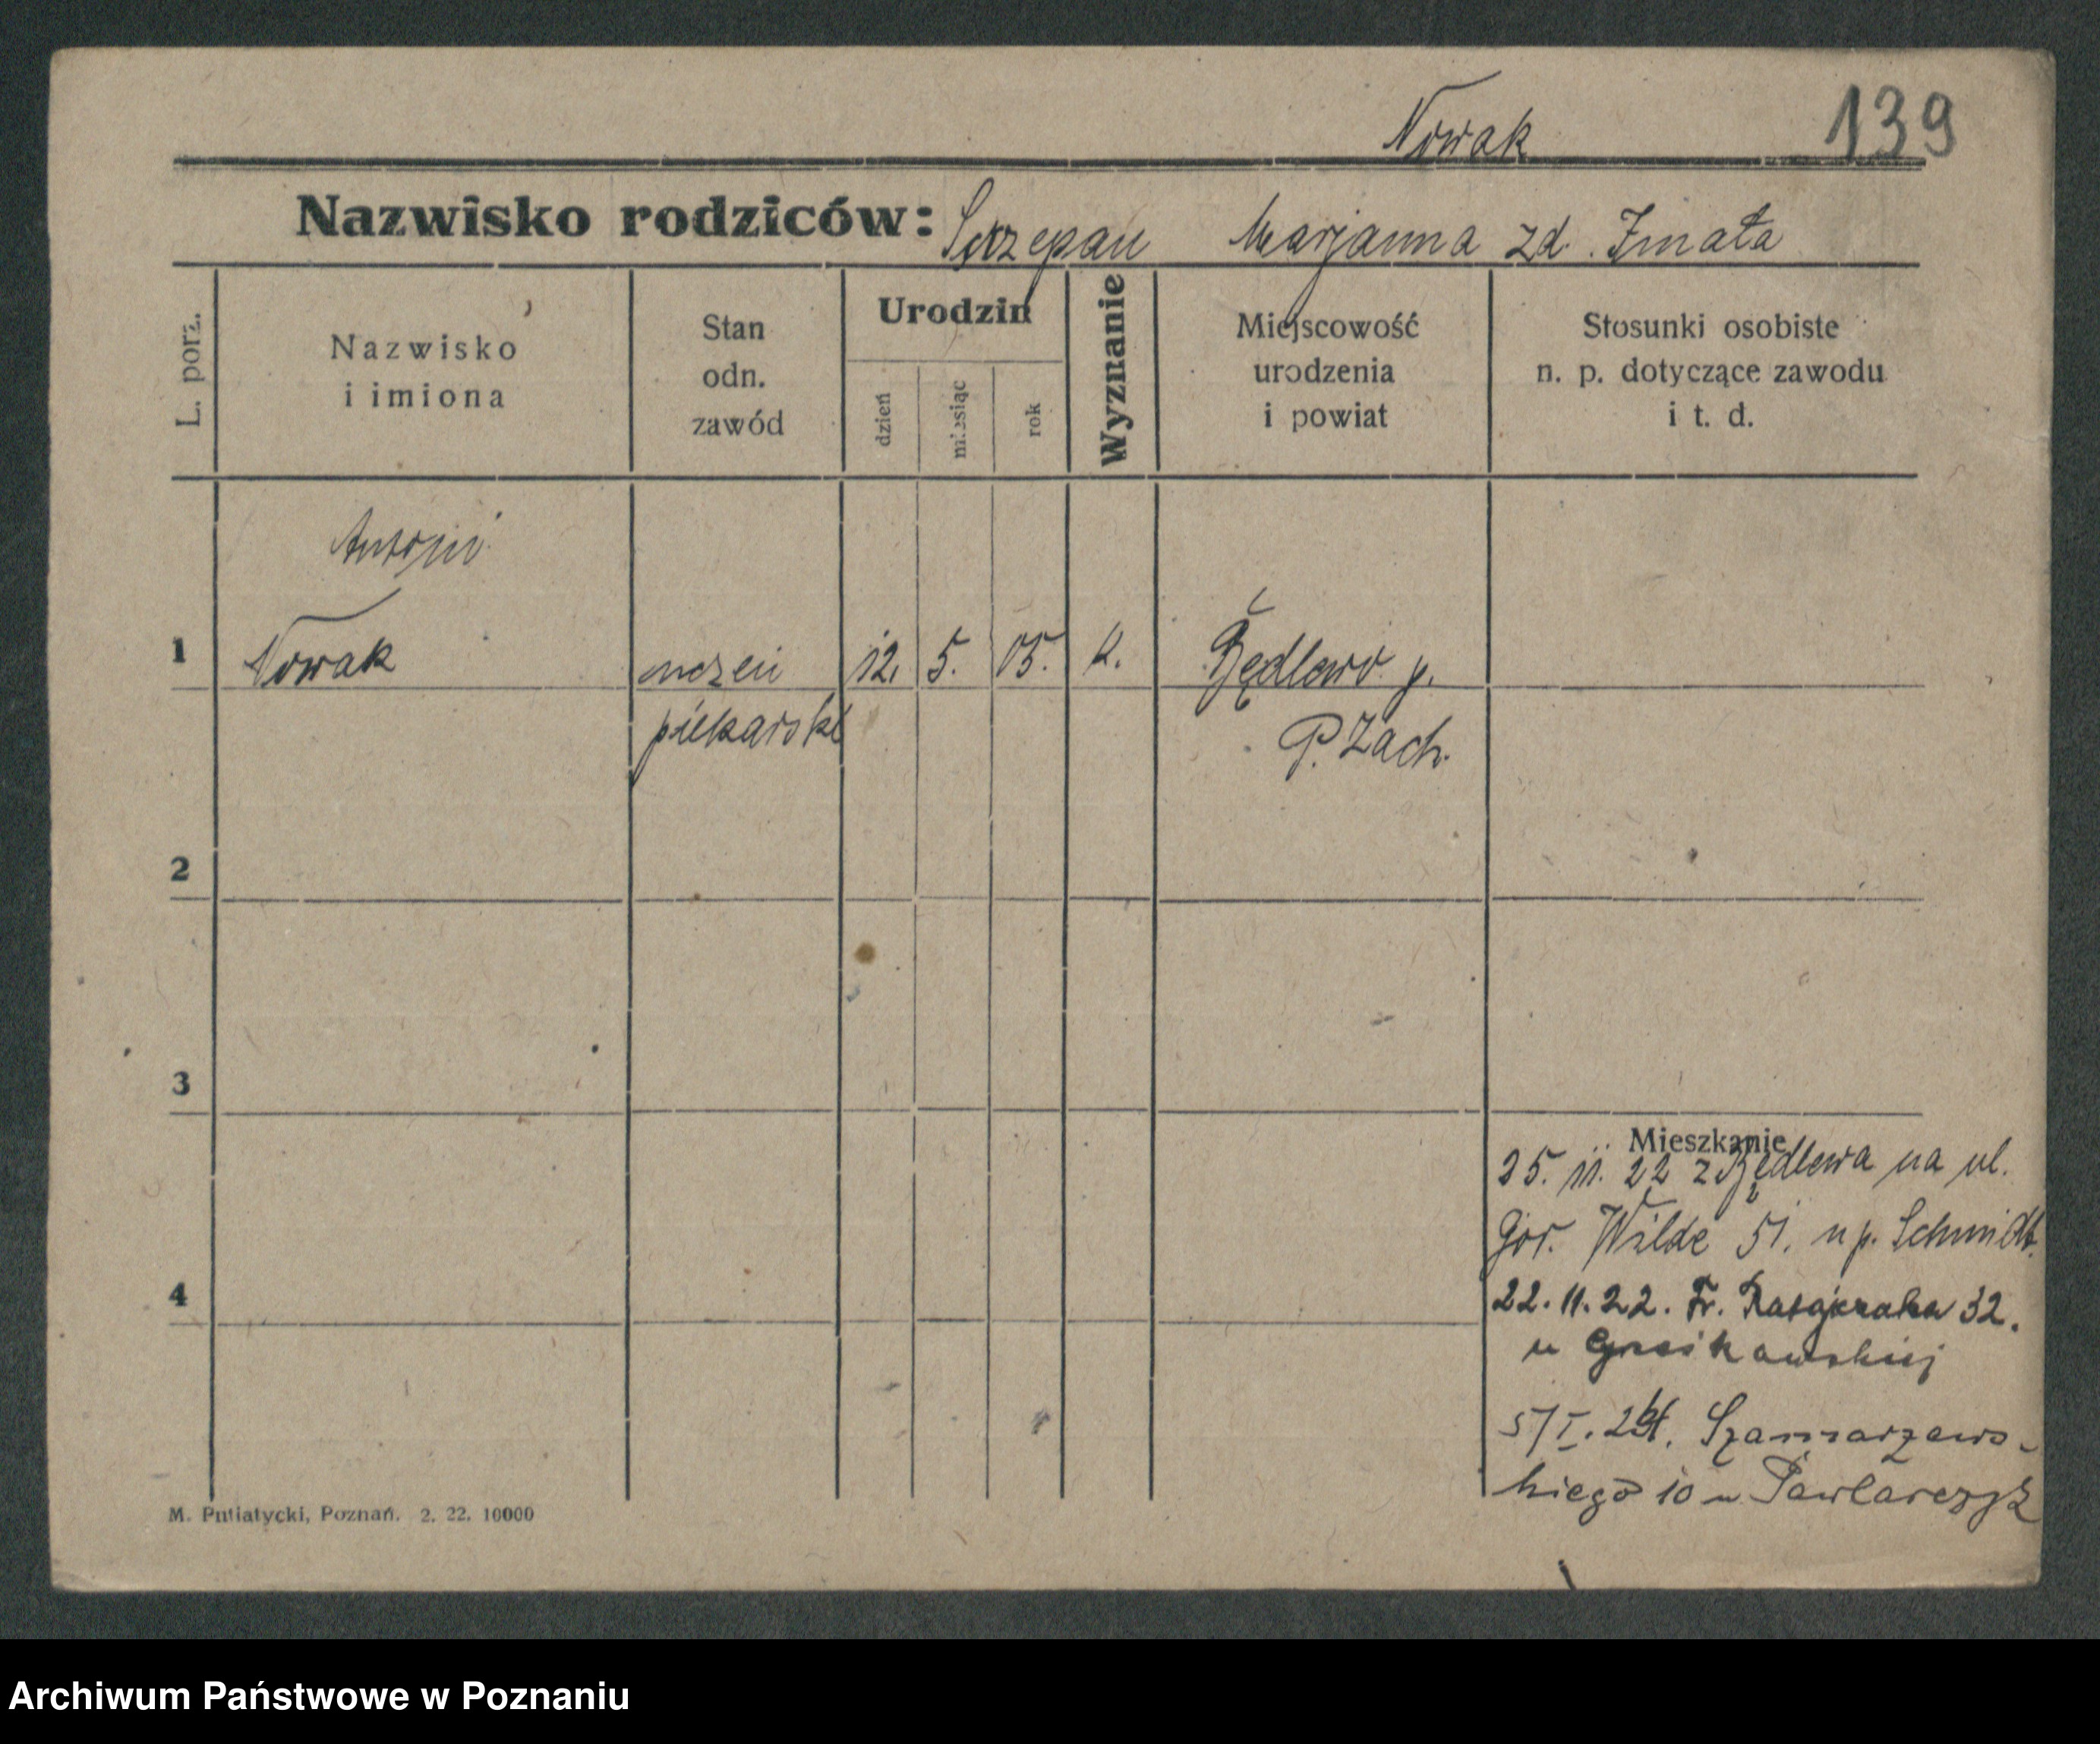 Nowak 139
Nazwisko rodziców: Szczepan Marjanna zd.
L. porz.
Nazwisko
i imiona
Stan
odn.
zawód
Urodzin
dzień
miesiąc
rok
Wyznanie
Miejscowość
urodzenia
i powiat
Stosunki osobiste
n. p. dotyczące zawodu
i t. d.
Antoni
1 Nowak uczeń 12. 5. 05. k. Będlewo p.
piekarski P. Zach.
2
3
Mieszkanie
25. 11. 22 z Będlewa na ul.
Gór. Wilde 51. u p. Schmidt.
4
22. 11. 22. Fr. Ratajczaka 32.
u
5/I. 24. Szamarzews-
kiego 10 u Pawlarczyk
M. Putiatycki, Poznań. 2. 22. 10000
Archiwum Państwowe w Poznaniu